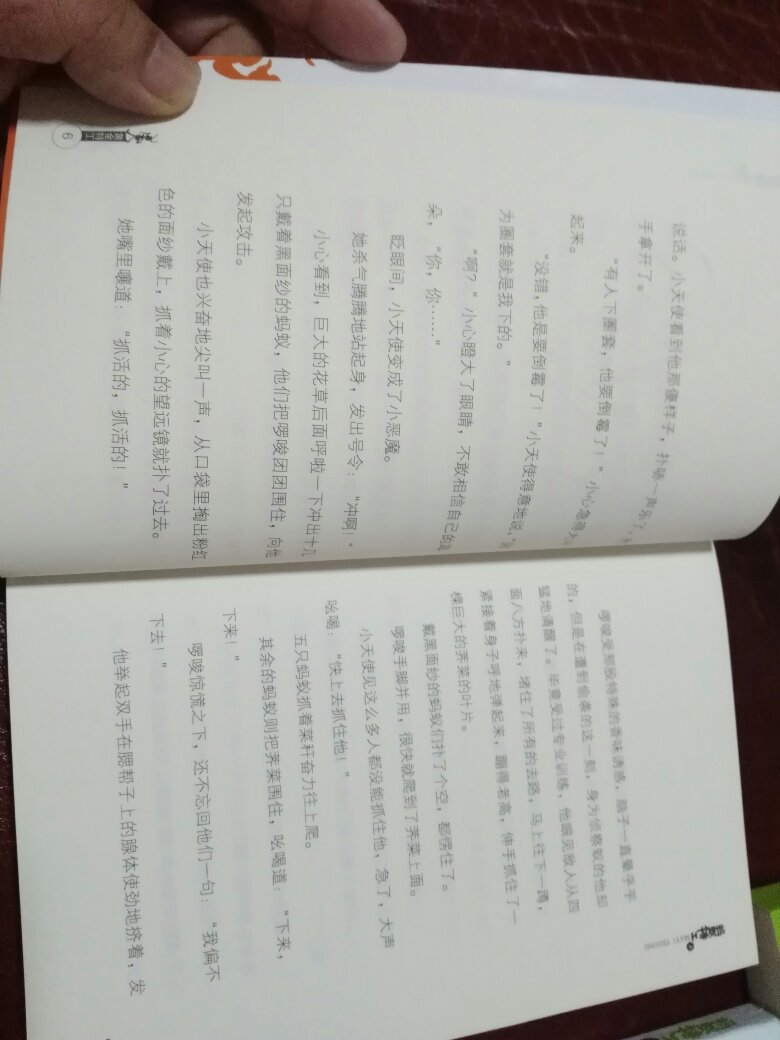 说话。小天使看到他那傻样子，扑哧一声乐了，
手拿开了。
“有人下圈套，他要倒霉了！”小心急得
起来。
“没错，他是要倒霉了！”小天使得意地说，
为圈套就是我下的。”
“啊？”小心瞪大了眼睛，不敢相信自己的
朵，“你，你……”
眨眼间，小天使变成了小恶魔。
她杀气腾腾地站起身，发出号令：“冲啊！”
小心看到，巨大的花草后面呼啦一下冲出十几
只戴着黑面纱的蚂蚁，他们把啰唆团团围住，向他
发起攻击。
小天使也兴奋地尖叫一声，从口袋里掏出粉红
色的面纱戴上，抓着小心的望远镜就扑了过去。
她嘴里嚷道：“抓活的，抓活的！”
6
啰唆受那股特殊的香味诱惑，脑子一直晕乎乎
的，但是在遭到偷袭的这一刻，身为侦察蚁的他却
猛地清醒了。毕竟受过专业训练，他眼见敌人从四
面八方扑来，堵住了所有的去路，马上往下一蹲，
紧接着身子呼地弹起来，蹦得老高，伸手抓住了一
棵巨大的荠菜的叶片。
戴黑面纱的蚂蚁们扑了个空，都愣住了。
啰唆手脚并用，很快就爬到了荠菜上面。
小天使见这么多人都没能抓住他，急了，大声
吆喝：“快上去抓住他！”
五只蚂蚁抓着菜秆奋力往上爬。
其余的蚂蚁则把荠菜围住，吆喝道：“下来，
下来！”
啰唆惊慌之下，还不忘回他们一句：“我偏不
下去！”
他举起双手在腮帮子上的腺体使劲地挤着，发